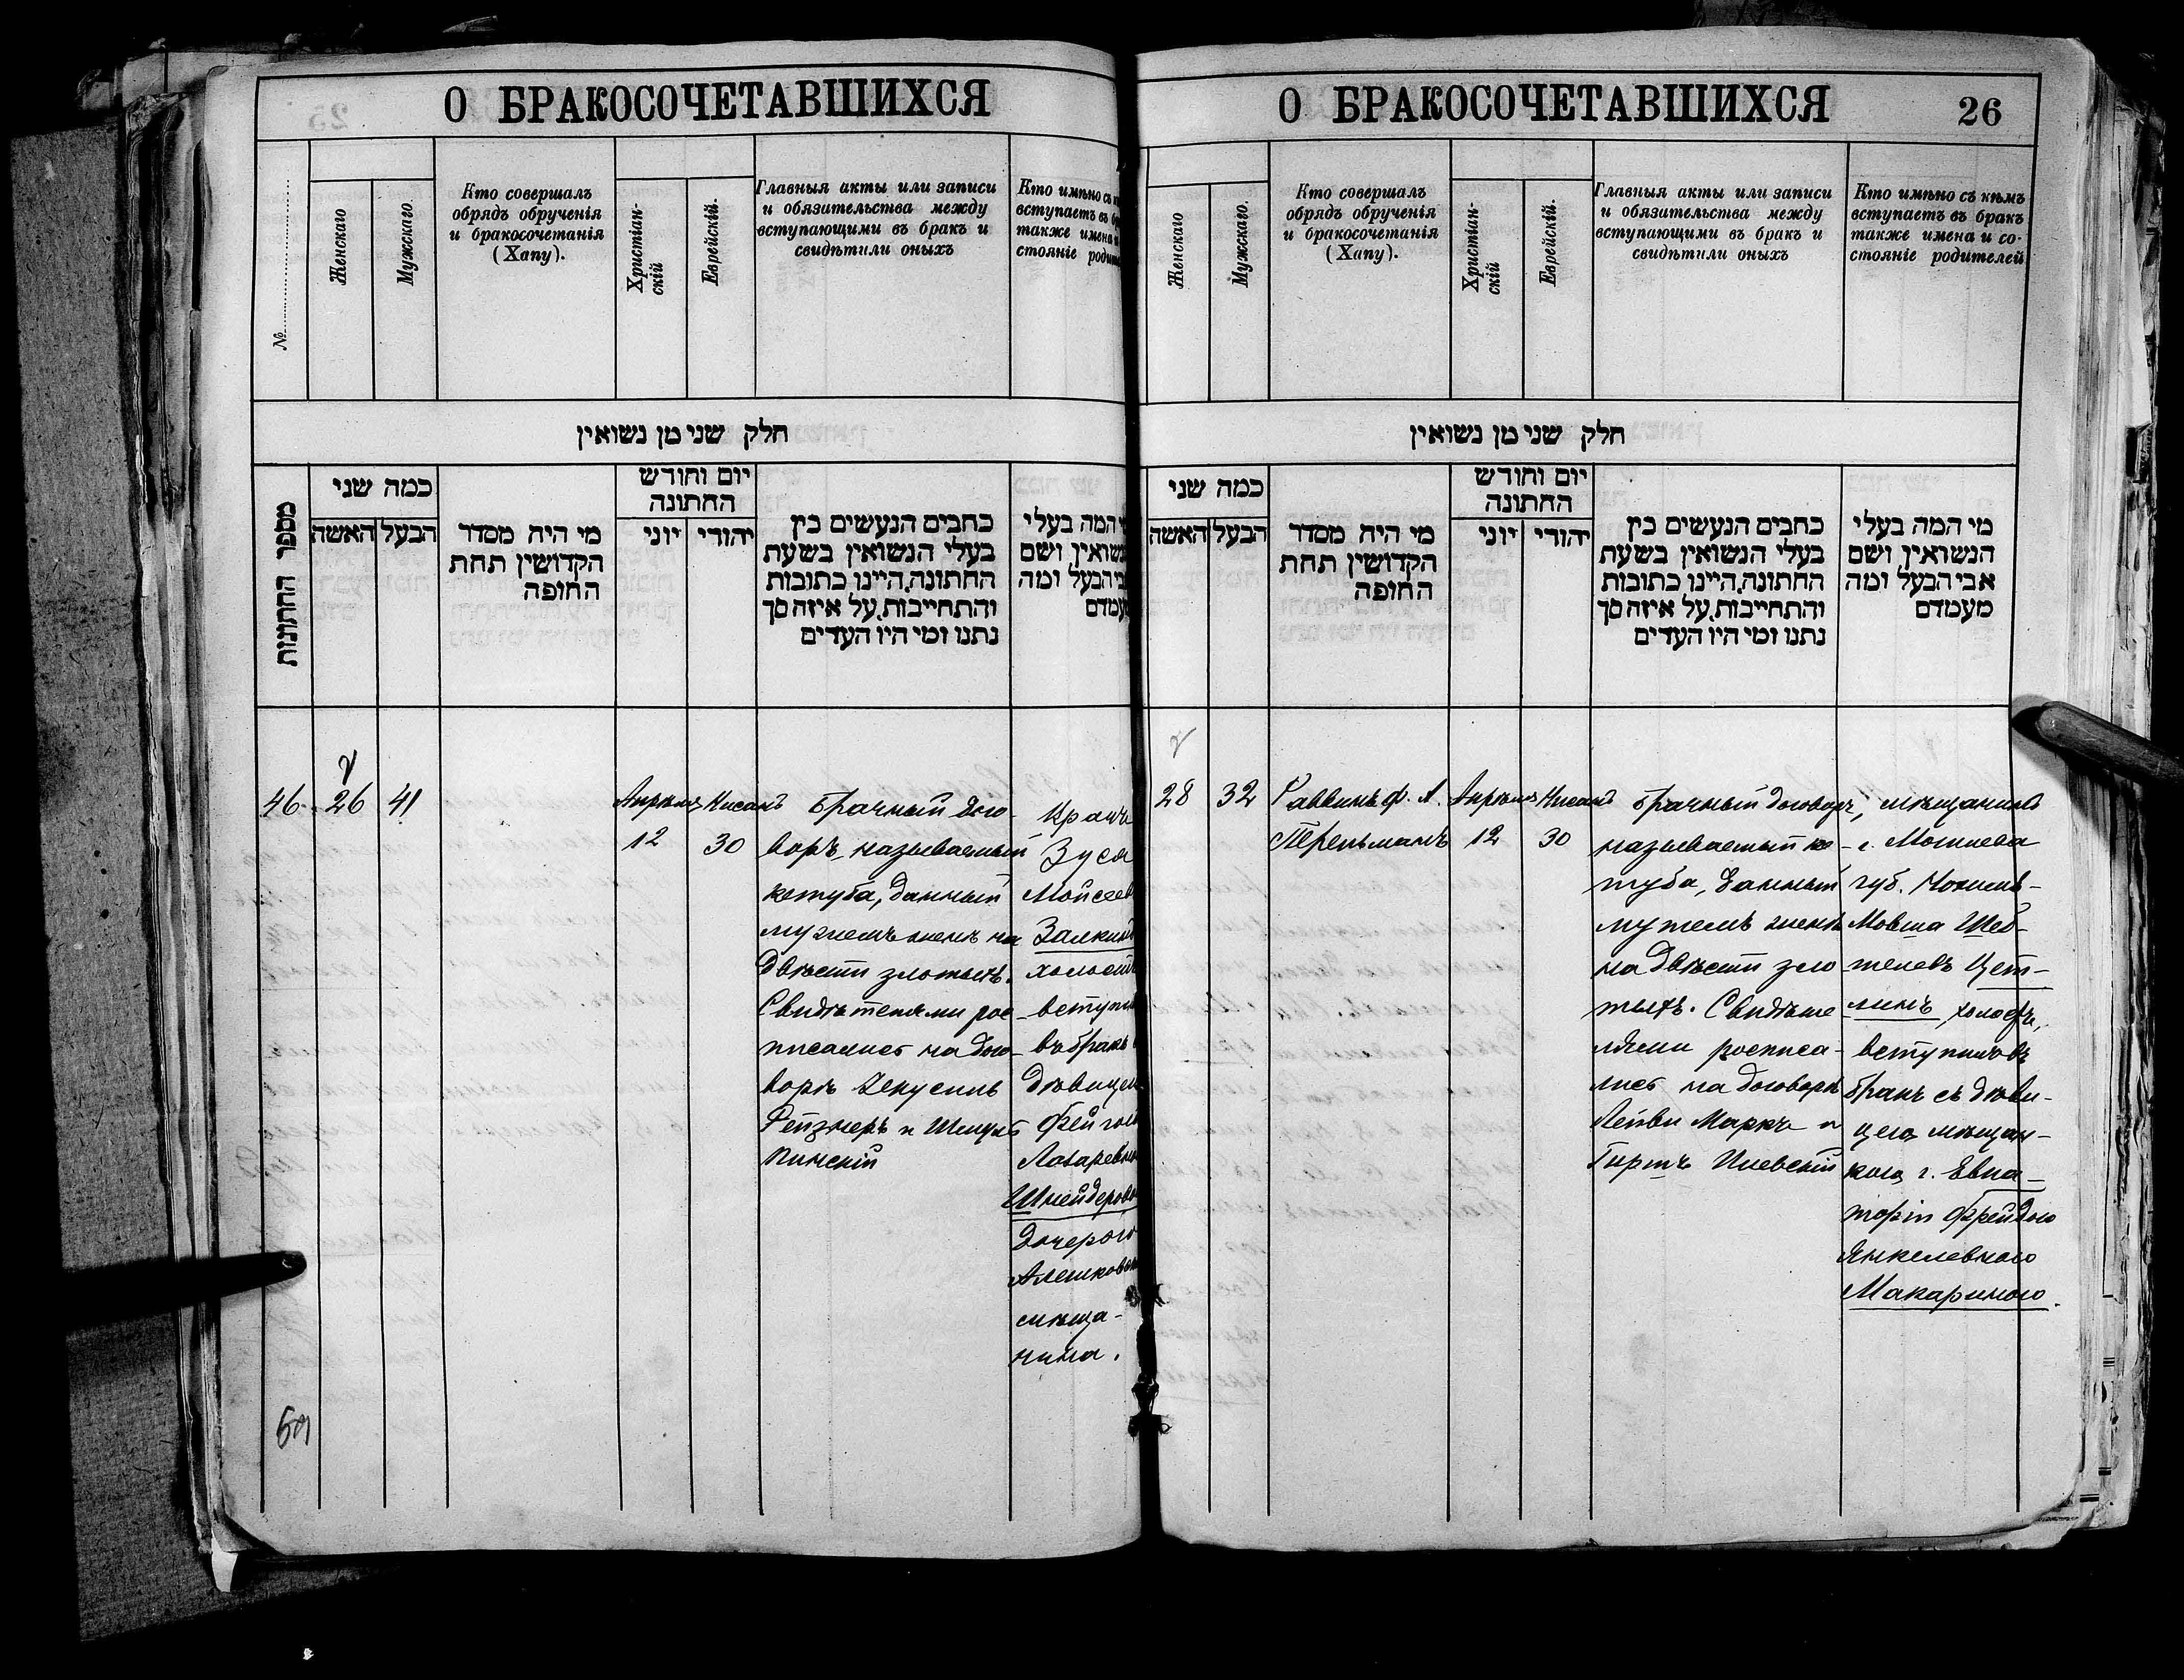 О БРАКОСОЧЕТАВШИХСЯ
№
Женскаго
Мужскаго
Кто совершалъ
обрядъ обрученія
и бракосочетанія
(Хапу).
Христіан-
скій
Еврейскій.
Главныя акты или записи
и обязательства между
вступающими въ бракъ и
свидѣтили оныхъ
Кто имѣно съ
вступаетъ въ
также имена
стояніе
חלק שני מן נשואין
מספר החתונות
כמה שני
האשה
הבעל
מי היה מסדר
הקדושין תחת
החופה
יום וחודש
החתונה
יוני
יהודי
כתבים הנעשים בין
בעלי הנשואין בשעת
החתונה, היינו כתובות
והתחייבות, על איזה סך
נתנו ומי היו העדים
המה בעלי
ושם
הבעל ומה
46
26
41
Апрѣля
12
Нисанъ
30
Брачный дого-
воръ называемый
кетуба, данный
мужемъ женѣ на
двѣсти злотыхъ.
Свидѣтелями рос-
писались на дого-
ворѣ Зекусиль
и
Пинскій
Зуся
Моисеев
Залкинд
холост
вступи
въ бракъ
дѣвицею
Фейгою
Лазаревно
Шнейдерово
дочерью
Алешковск
мѣща-
нина.
О БРАКОСОЧЕТАВШИХСЯ
26
Женскаго
Мужскаго.
Кто совершалъ
обрядъ обрученія
и бракосочетанія
(Хапу).
Христіан-
скій
Еврейскій.
Главныя акты или записи
и обязательства между
вступающими въ бракъ и
свидѣтили оныхъ
Кто имѣно съ кѣмъ
вступаетъ въ бракъ
также имена и со-
стояніе родителей
חלק שני מן נשואין
כמה שני
האשה
הבעל
מי היה מסדר
הקדושין תחת
החופה
יום וחודש
החתונה
יוני
יהודי
כתבים הנעשים בין
בעלי הנשואין בשעת
החתונה, היינו כתובות
והתחייבות, על איזה סך
נתנו ומי היו העדים
מי המה בעלי
הנשואין ושם
אבי הבעל ומה
מעמדם
28
32
Раввинъ Ф. Л.
Перельманъ
Апрѣля
12
Нисанъ
30
Брачный договоръ,
называемый ке-
туба, данный
мужемъ женѣ
на двѣсти зло-
тыхъ. Свидѣте-
лями росписа-
лись на договорѣ
Лейви Маркъ и
Гиршъ Иевскій
мѣщанинъ
г. Могилева
губ. Могилев-
Мовша Шеб-
телевъ Цет-
линъ холостъ,
вступилъ въ
бракъ съ дѣви-
цею мѣщан-
кою г. Евпа-
торіи Фрейдою
Янкелевною
Макариною.